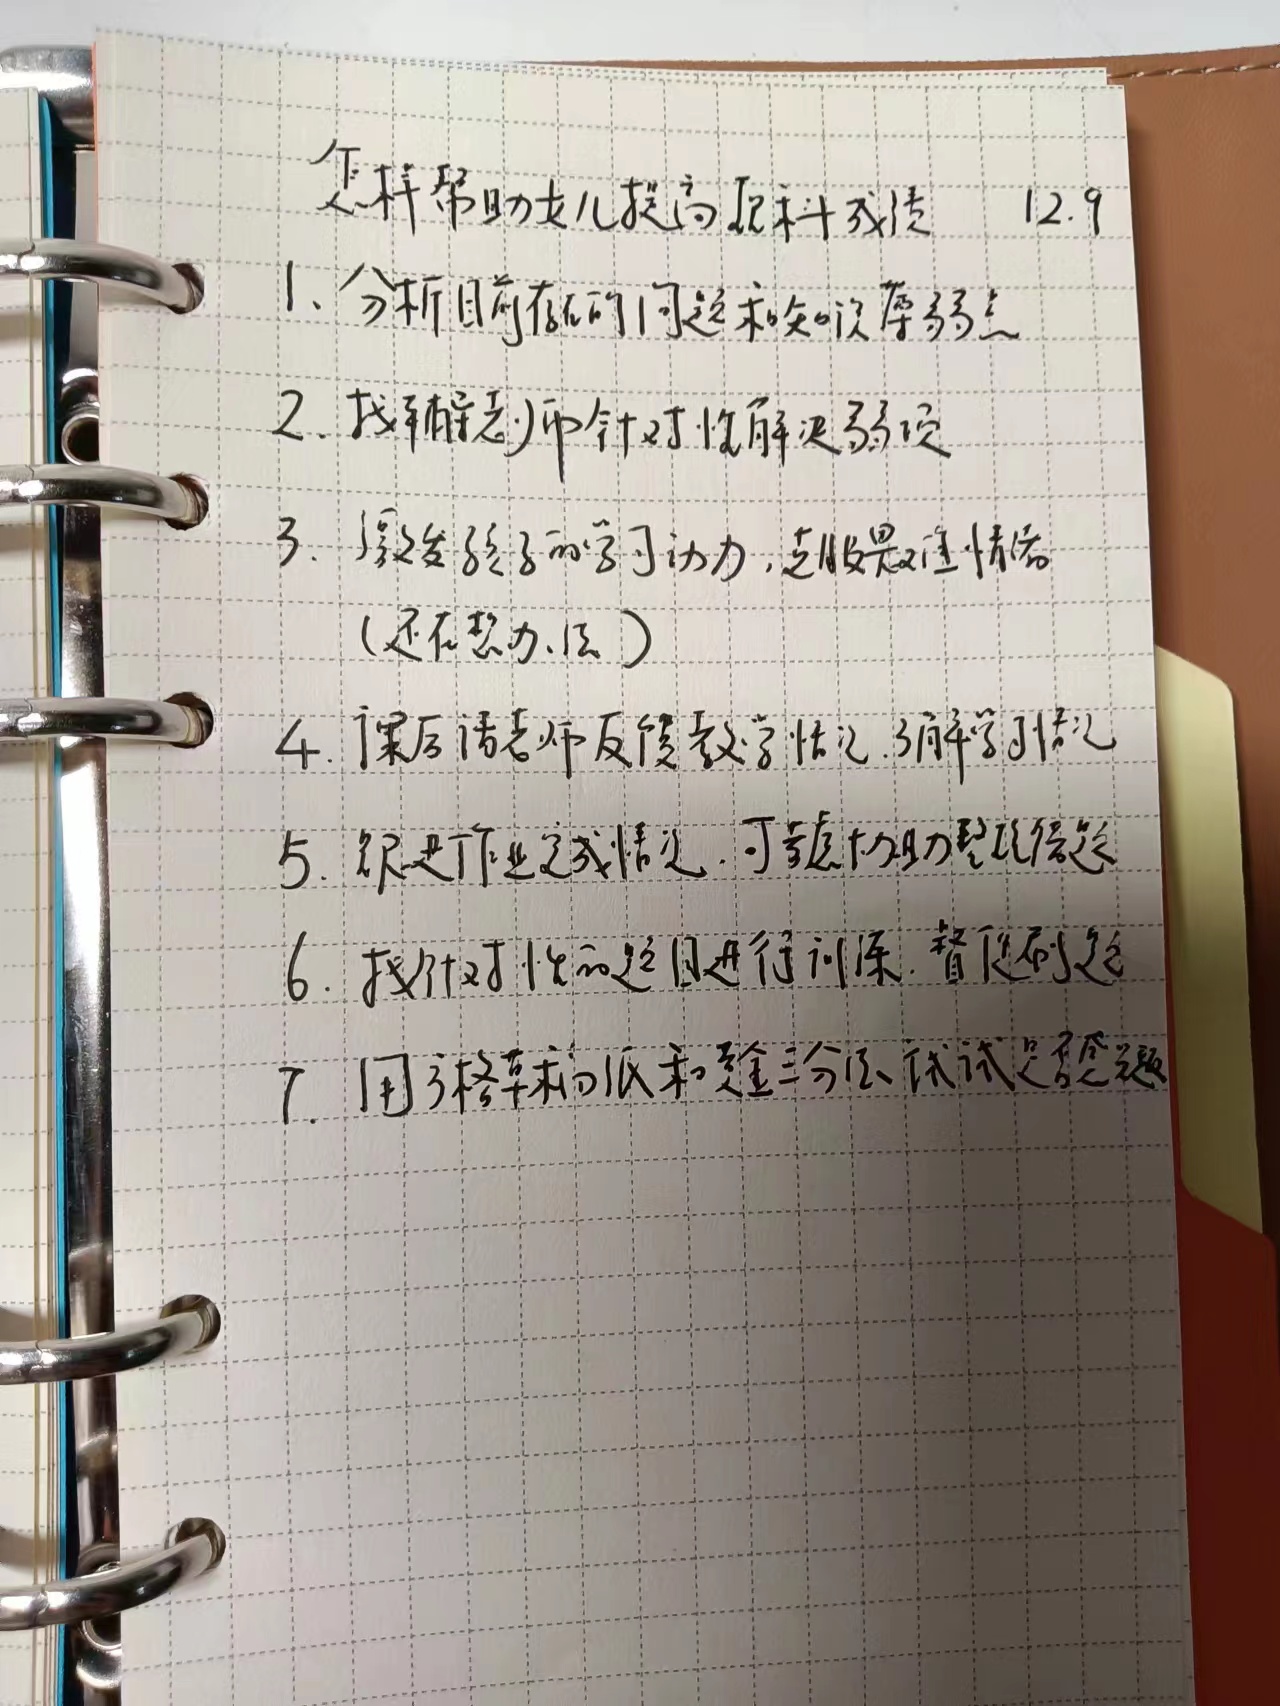 怎样帮助女儿提高理科成绩 12.9
1. 分析目前存在的问题和知识薄弱点
2. 找辅导老师针对性解决弱项
3. 激发孩子的学习动力，克服畏难情绪
（还在想办法）
4. 课后请老师反馈教学情况，了解学习情况
5. 跟进作业完成情况，可考虑协助整理错题
6. 找针对性的题目进行训练，督促刷题
7. 用方格草稿纸和黄金三分法，试试是否